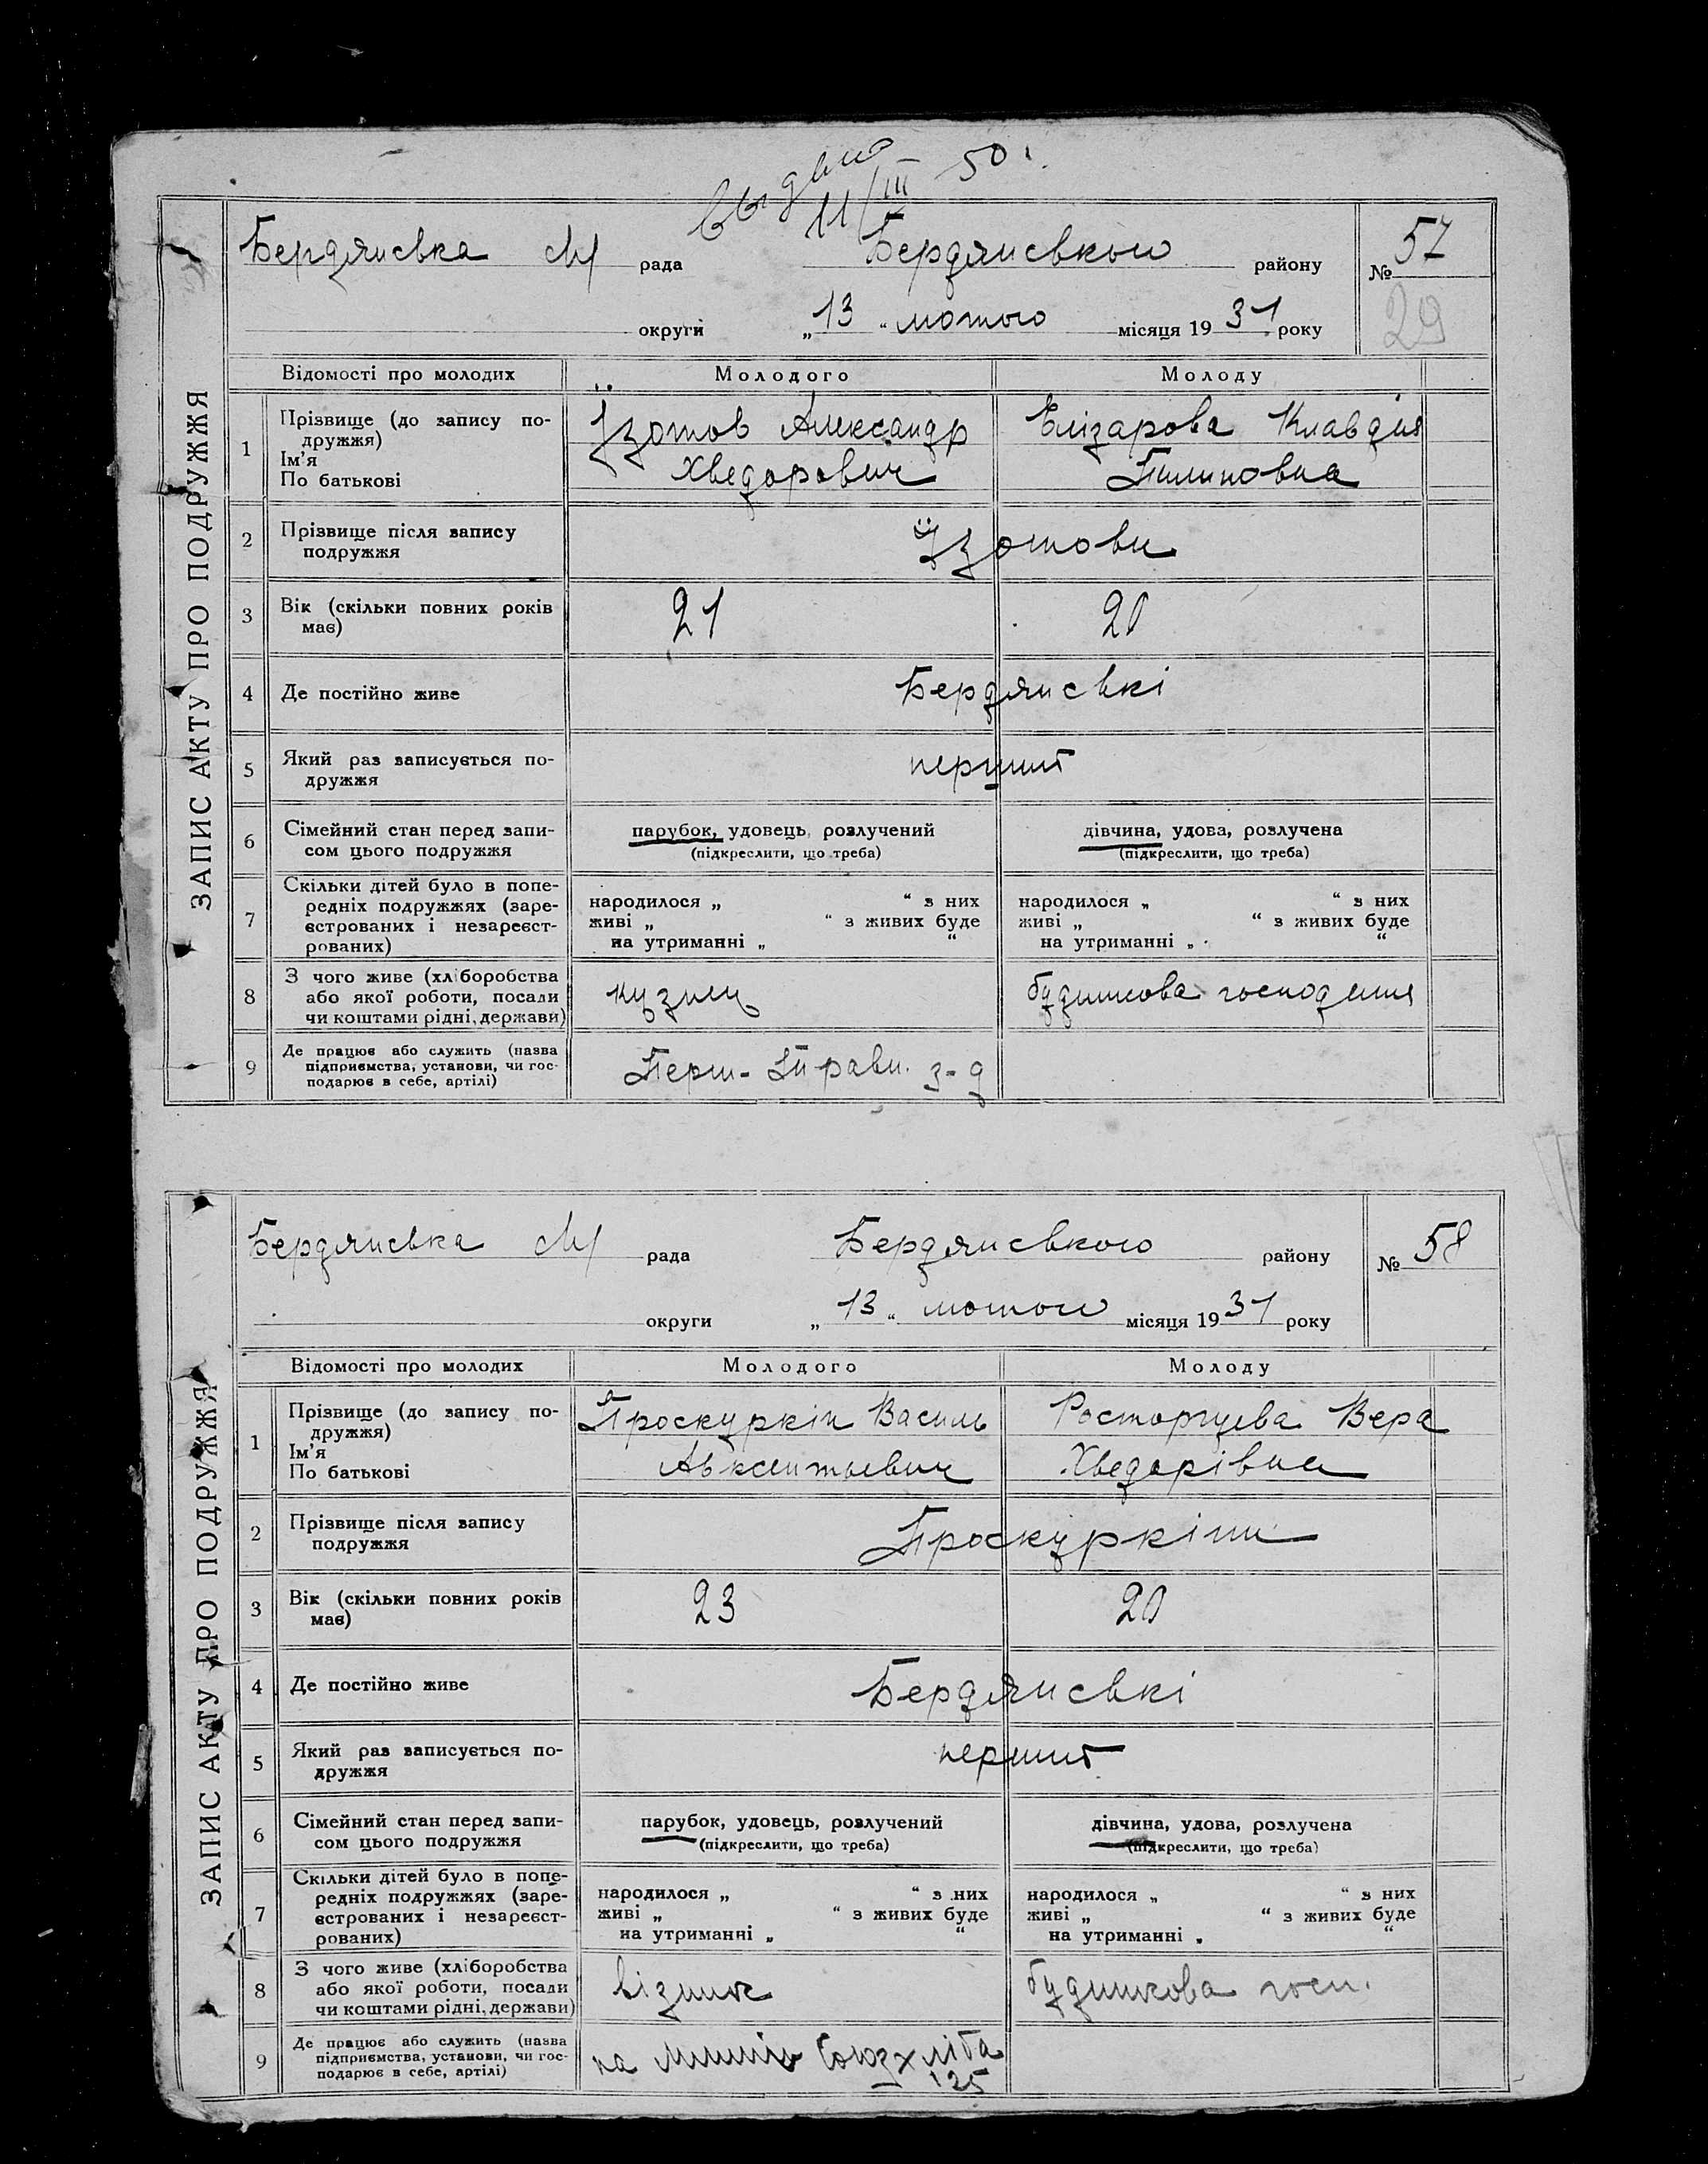 выдано 11/III 50 г.
Бердянська М рада Бердянського району № 57
округи „13“ лютого місяця 1931 року 29
ЗАПИС АКТУ ПРО ПОДРУЖЖЯ
Відомості про молодих Молодого Молоду
1 Прізвище (до запису по-
дружжя)
Ім’я
По батькові
Їзотов Александр Елізарова Клавдия
Хведорович Пилиповна
2 Прізвище після запису
подружжя
Їзотови
3 Вік (скільки повних років
має)
21 20
4 Де постійно живе Бердянські
5 Який раз записується по-
дружжя
перший
6 Сімейний стан перед запи-
сом цього подружжя
парубок, удовець, розлучений дівчина, удова, розлучена
(підкреслити, що треба) (підкреслити, що треба)
7 Скільки дітей було в попе-
редніх подружжях (заре-
єстрованих і незареєст-
рованих)
народилося „ “ з них народилося „ “ з них
живі „ “ з живих буде живі „ “ з живих буде
на утриманні „ “ на утриманні „ “
8 З чого живе (хліборобства
або якої роботи, посади
чи коштами рідні, держави)
кузнец будинкова господиня
9 Де працює або служить (назва
підприємства, установи, чи гос-
подарює в себе, артілі)
Перш- Правн. з-д
Бердянська М рада Бердянського району № 58
округи „13“ лютого місяця 1931 року
ЗАПИС АКТУ ПРО ПОДРУЖЖЯ
Відомості про молодих Молодого Молоду
1 Прізвище (до запису по-
дружжя)
Ім’я
По батькові
Проскуркін Василь Расторгуева Вера
Авксентьевич Хведорівна
2 Прізвище після запису
подружжя
Проскуркіни
3 Вік (скільки повних років
має)
23 20
4 Де постійно живе Бердянські
5 Який раз записується по-
дружжя
перший
6 Сімейний стан перед запи-
сом цього подружжя
парубок, удовець, розлучений дівчина, удова, розлучена
(підкреслити, що треба) (підкреслити, що треба)
7 Скільки дітей було в попе-
редніх подружжях (заре-
єстрованих і незареєст-
рованих)
народилося „ “ з них народилося „ “ з них
живі „ “ з живих буде живі „ “ з живих буде
на утриманні „ “ на утриманні „ “
8 З чого живе (хліборобства
або якої роботи, посади
чи коштами рідні, держави)
візник будинкова госп.
9 Де працює або служить (назва
підприємства, установи, чи гос-
подарює в себе, артілі)
на Союзхліба
125